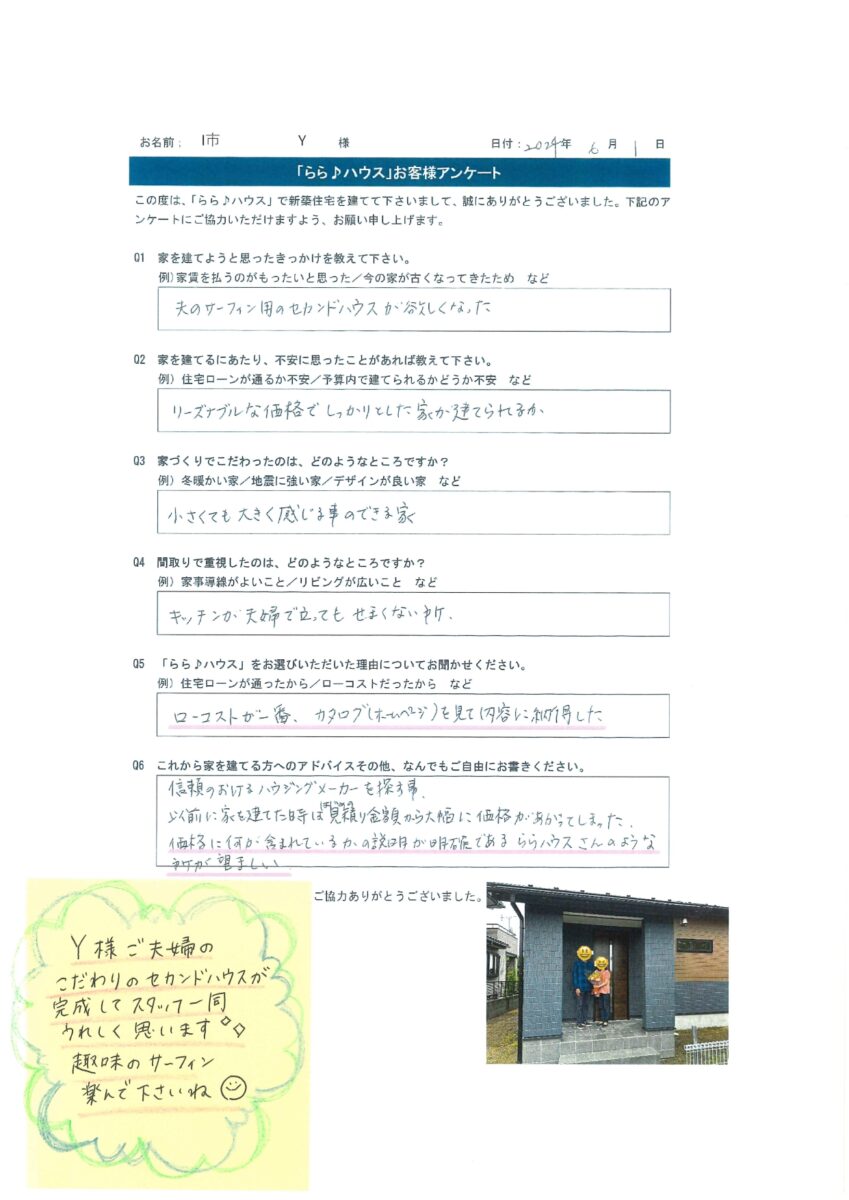 お名前： I市 Y 様 日付：2024年 6月 1日
「らら♪ハウス」お客様アンケート
この度は、「らら♪ハウス」で新築住宅を建てて下さいまして、誠にありがとうございました。下記のア
ンケートにご協力いただけますよう、お願い申し上げます。
Q1 家を建てようと思ったきっかけを教えて下さい。
例)家賃を払うのがもったいと思った／今の家が古くなってきたため など
夫のサーフィン用のセカンドハウスが欲しくなった
Q2 家を建てるにあたり、不安に思ったことがあれば教えて下さい。
例）住宅ローンが通るか不安／予算内で建てられるかどうか不安 など
リーズナブルな価格でしっかりとした家が建てられるか
Q3 家づくりでこだわったのは、どのようなところですか？
例）冬暖かい家／地震に強い家／デザインが良い家 など
小さくても大きく感じる事のできる家
Q4 間取りで重視したのは、どのようなところですか？
例）家事導線がよいこと／リビングが広いこと など
キッチンが夫婦で立ってもせまくない所.
Q5 「らら♪ハウス」をお選びいただいた理由についてお聞かせください。
例）住宅ローンが通ったから／ローコストだったから など
ローコストが一番、カタログ(ホームページ)を見て内容に納得した
Q6 これから家を建てる方へのアドバイスその他、なんでもご自由にお書きください。
信頼のおけるハウジングメーカーを探す事.
以前に家を建てた時は 見積り金額から大幅に価格があがってしまった.
価格に何が含まれているかの説明が明確であるららハウスさんのような
所が望ましい
ご協力ありがとうございました。
Y様ご夫婦の
こだわりのセカンドハウスが
完成してスタッフ一同
うれしく思います
趣味のサーフィン
楽んで下さいね